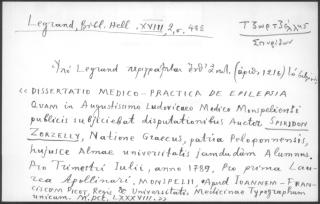 Legrand, Bibl. Hell. XVIII, 2, σ. 485
Τζωρτζέλλης
Σπυρίδων
Legrand περιγράφεται (ἀριθ. 1216)
«DISSERTATIO MEDICO-PRACTICA DE EPILEPSIA
QUAM in Augustissimo Ludoviceo Medico Monspeliensi
publicis subjiciebat disputationibus Auctor SPIRIDON
ZORZELLY, Natione Graecus, patria Peloponnensis,
hujusce Almae universitatis jamdudum Alumnus.
Pro Trimestri Iulii, anno 1789. Pro prima Lau-
rea Apollinari. MONSPELII, Apud IOANNEM-FRAN-
CISCUM PICOT, Regis & Universitatis Medicinae Typographum
unicum. M.DCC.LXXXVIII.»